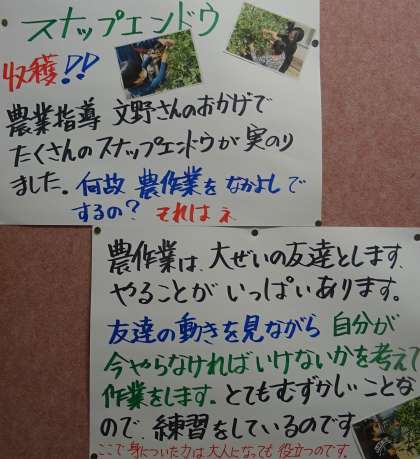 スナップエンドウ
収穫!!
農業指導 文野さんのおかげで
たくさんのスナップエンドウが実のり
ました。何故 農作業をなかよしで
するの? それはネ
農作業は、大ぜいの友達とします。
やることがいっぱいあります。
友達の動きを見ながら 自分が
今やらなければいけないかを考えて
作業をします。とてもむずかしいことな
ので、練習をしているのです
ここで身についた力は大人になっても役立つのです。